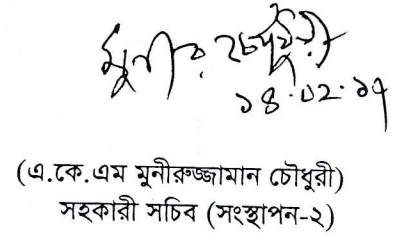 মুনীর চৌধুরী
১৪.০২.১৭
(এ.কে.এম মুনীরুজ্জামান চৌধুরী)
সহকারী সচিব (সংস্থাপন-২)